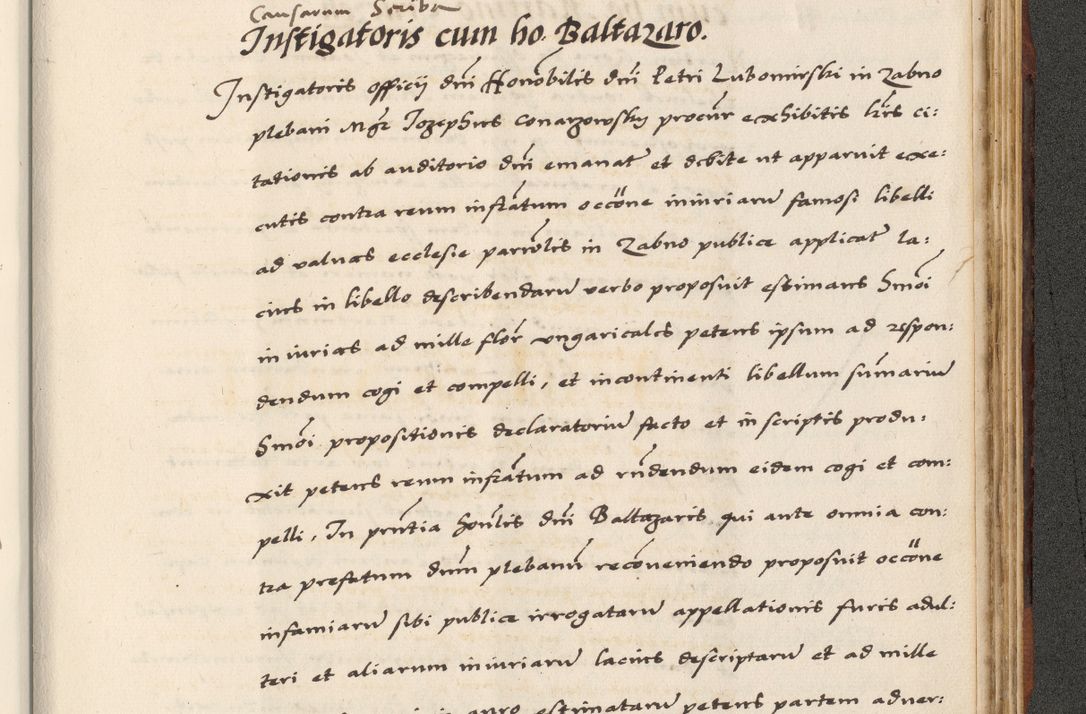 Causarum Scriba
Instigatoris cum ho. Baltazaro.
Instigatoris officij dni Honobilis dni Petri Lubomirski in Zabno
plebani Mgr Iozephus Conarzowsky procur exhibitis lris ci:
tationis ab auditorio dni emanat et debite ut apparuit exe:
cutis contra reum infratum occöne iniuriaru famosi libelli
ad valuas ecclesie parrolis in Zabno publice applicat la:
cius in libello describendaru verbo proposuit estimans Smoi
iniurias ad mille flor vngaricales petens ipsum ad respon:
dendum cogi et compelli, et incontinenti libellum sumariu
Smoi propositionis declaratoriu facto et in scriptis produ:
xit petens reum infratum ad rndendum eidem cogi et com:
pelli, In prntia honlis dni Baltazaris qui ante omnia con:
tra prefatum dnum plebanu reconveniendo proposuit occöne
infamiaru sibi publice irrogataru appellationis furis adul:
teri et aliarum iniuriaru lacius descriptaru et ad mille
auro estimatarum petens partem adver: